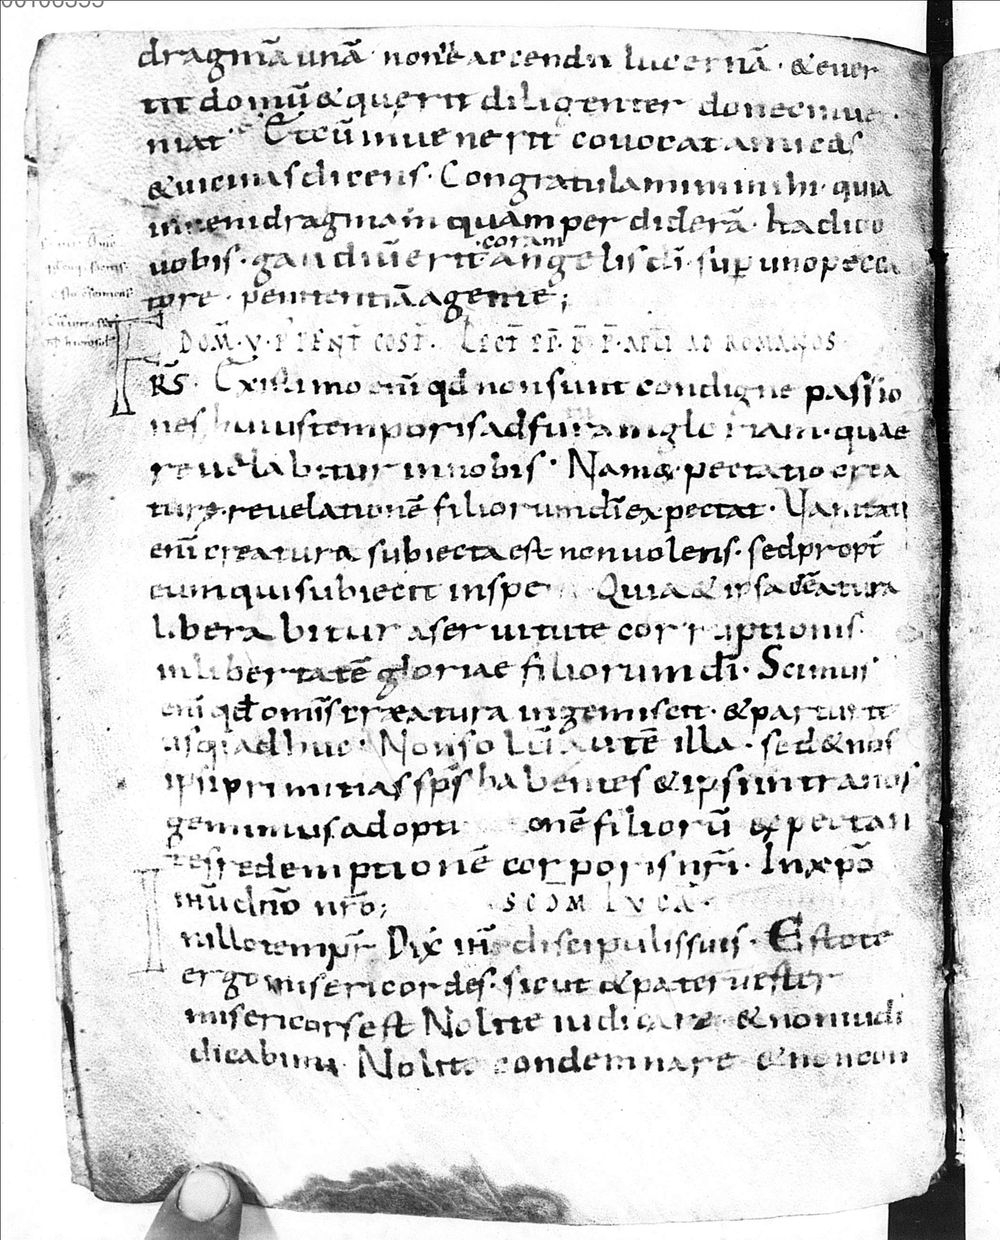 dragmā unā· nonne accendit lucernā· & euer
tit domū & querit diligenter donec inue
niat· Et cū inuenerit conuocat amicas
& uicinas dicens· Congratulamini mihi· quia
inueni dragmam quam perdiderā· Ita dico
uobis· gaudiū erit coram angelis dī· sup uno pecca
tore· penitentiā agente;
DOM̄· V· P̄ PENT̄ COST̄· LECT̄ EP̄· B̄· P̄· APL̄I AD ROMANOS·
FRS̄· Existimo enī qđ non sunt condigne passio
nes huius temporis ad futuram gloriam· quae
reuelabitur in nobis· Nam & pectatio crea
ture reuelationē filiorum dī expectat· Vanitati
enī creatura subiecta est non uolens· sed propt̄
eum qui subiecit in spe Quia & ipsa creatura
liberabitur a seruitute corruptionis·
in libertatē gloriae filiorum dī· Scimus
enī qđ omīs creatura ingemiscit· & parturit
usq; adhuc· Non solū autē illa· sed & nos
ipsi primitias sp̄s habentes & ipsi intra nos
gemimus adoptionē filiorū expectan
tes redemptionē corporis nr̄i· In xp̄o
ih̄u dn̄o nr̄o; SCD̄M LVCĀ·
In illo tempr̄· Dix̄ ih̄s discipulis suis· Estote
ergo misericordes· sicut & pater uester
misericors est Nolite iudicare· & non iudi
dicabimi· Nolite condemnare· & non con